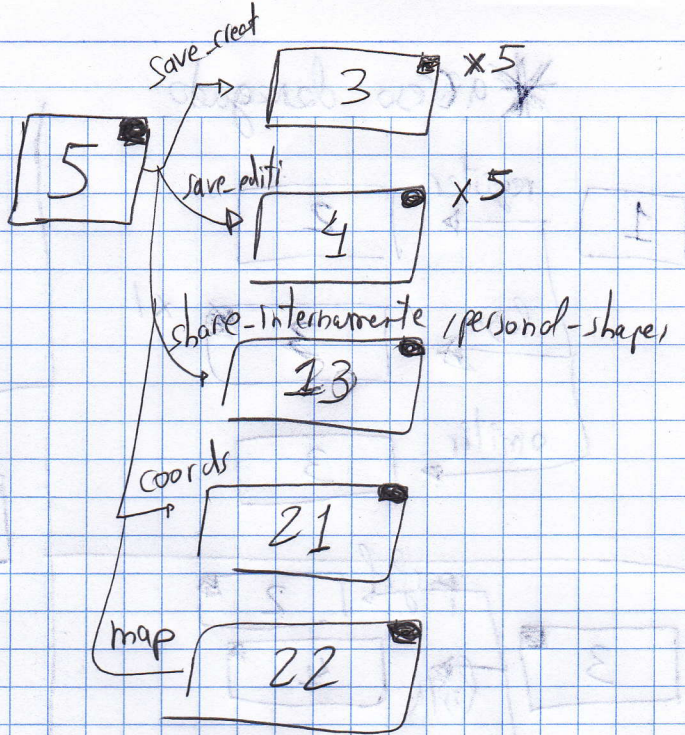 save_creat
3 x5
5
save_editi
4 x5
share-internamente, personal-shape,
13
coords
21
map
22